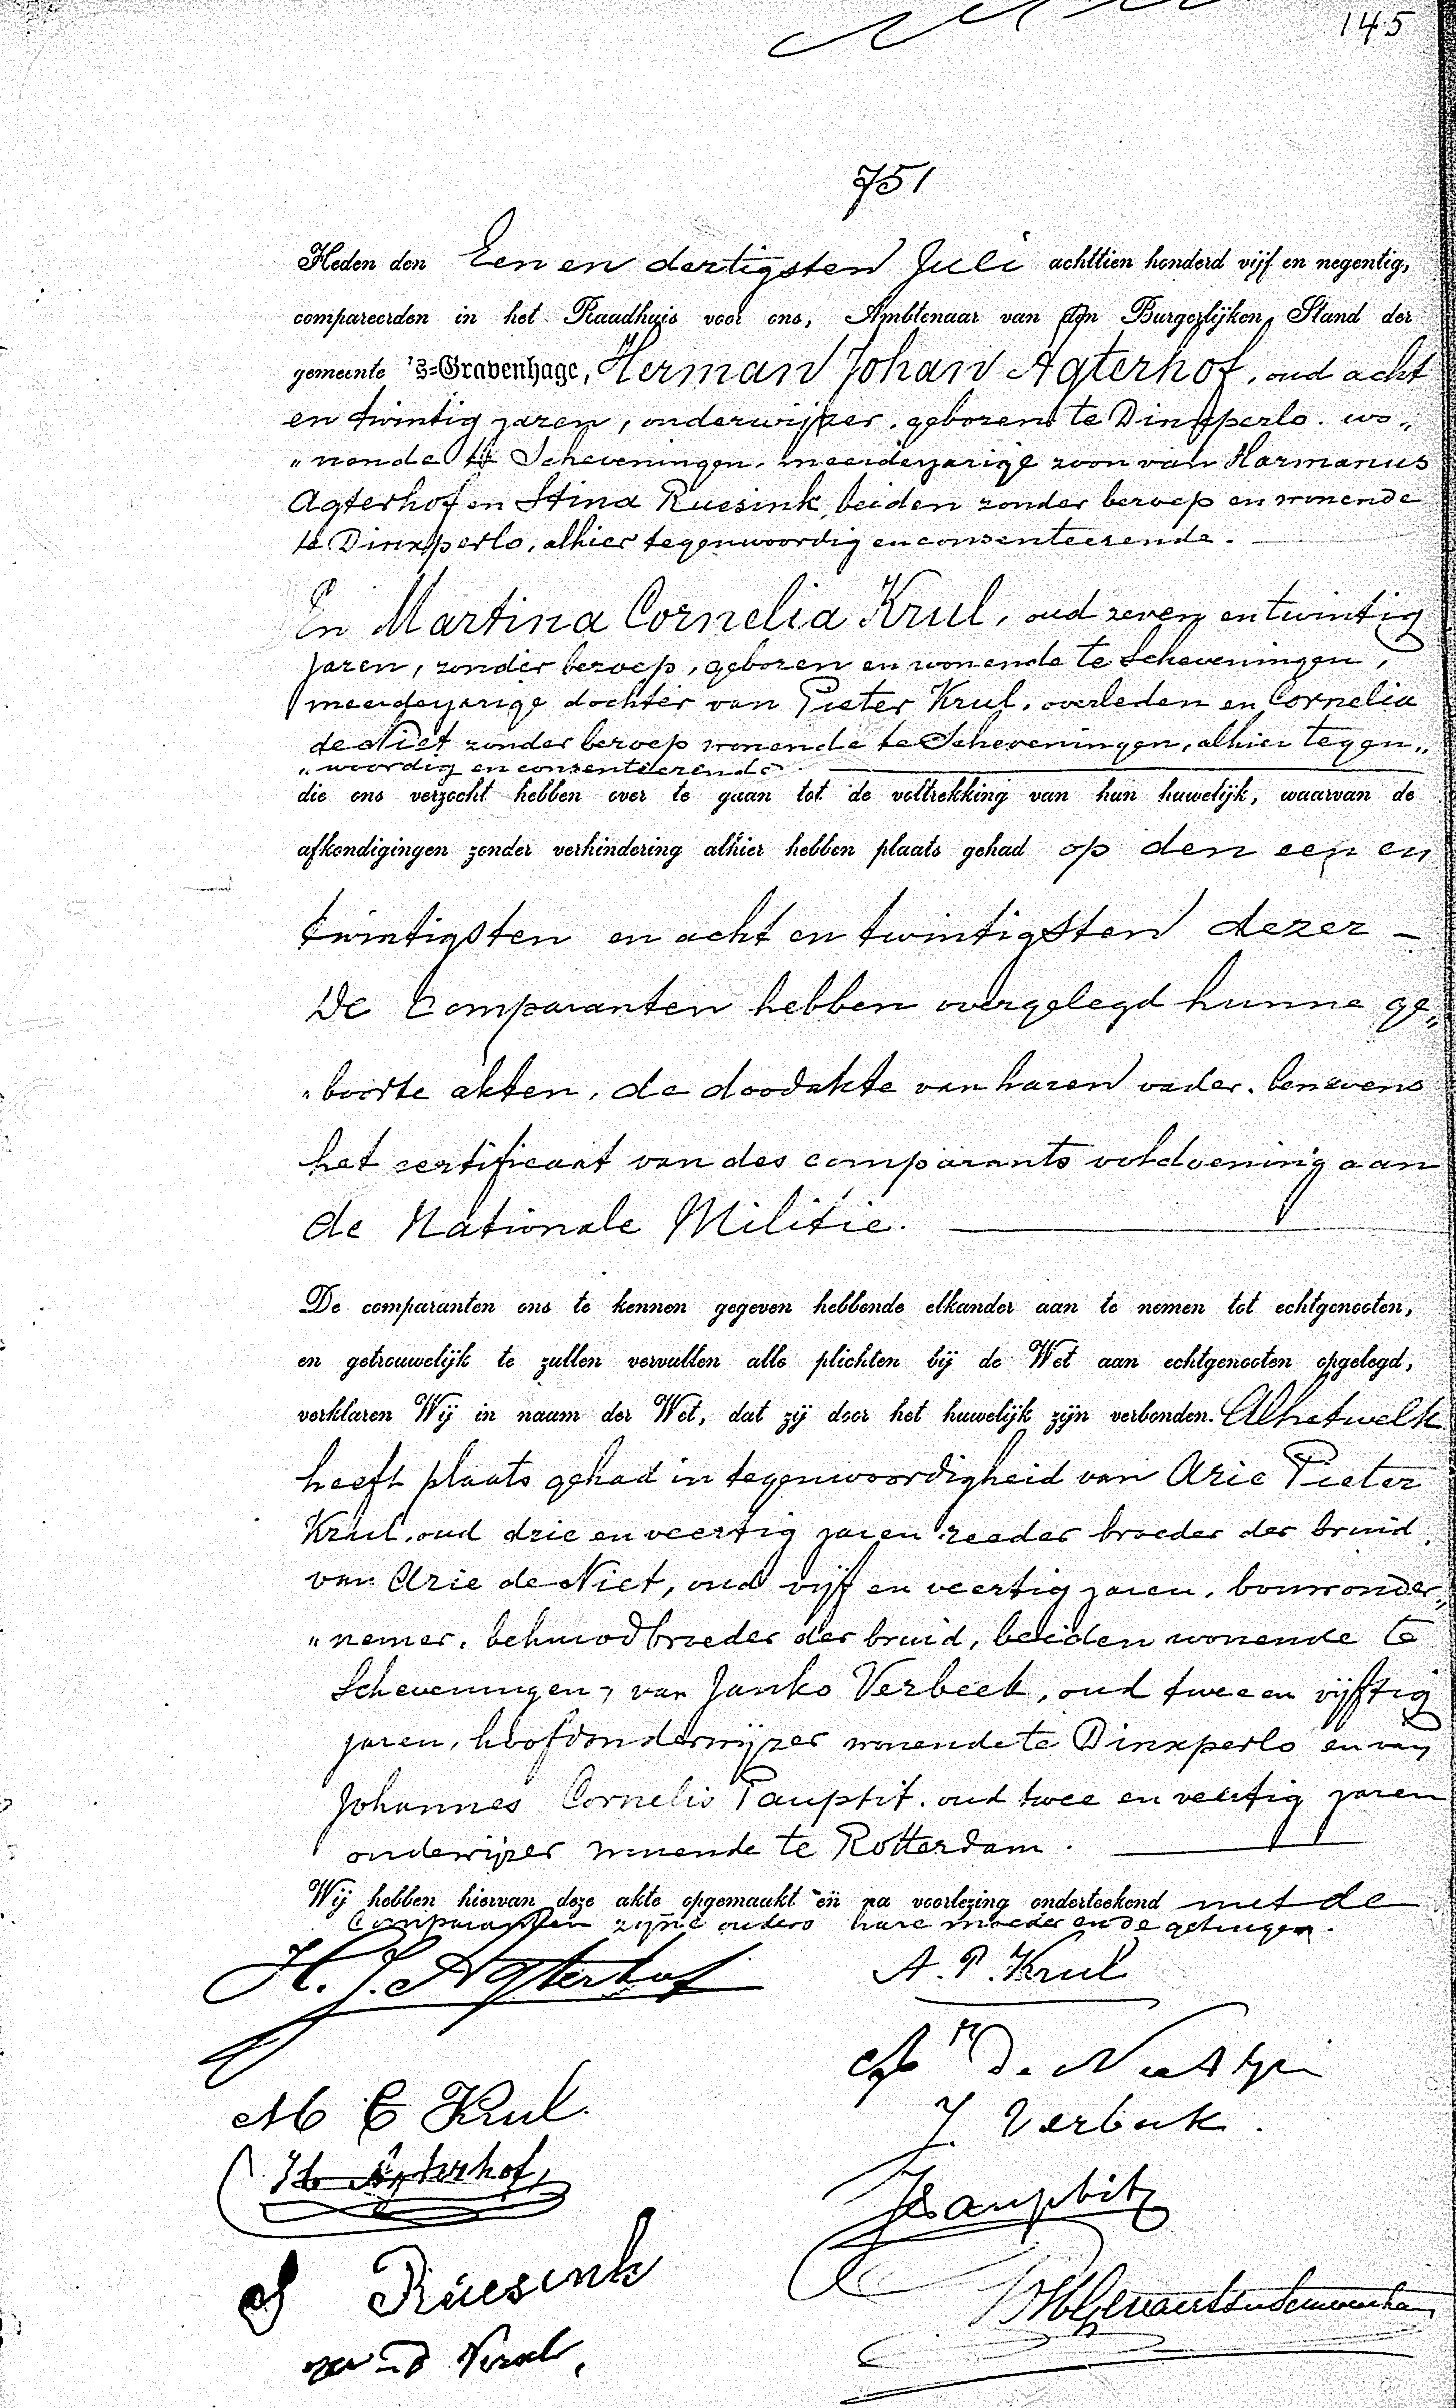 145
751
Heden den Een en dertigsten Juli achttien honderd vijf en negentig,
compareerden in het Raadhuis voor ons, Ambtenaar van den Burgerlijken Stand der
gemeente 's-Gravenhage, Herman Johan Agterhof, oud acht
en twintig jaren, onderwijzer, geboren te Dinxperlo, wo„
„nende te Scheveningen, meerderjarige zoon van Harmanus
Agterhof en Stina Ruesink, beiden zonder beroep en wonende
te Dinxperlo, alhier tegenwoordig en consenteerende.
En Martina Cornelia Krul, oud zeven en twintig
jaren, zonder beroep, geboren en wonende te Scheveningen,
meerderjarige dochter van Pieter Krul, overleden en Cornelia
de Niet zonder beroep wonende te Scheveningen, alhier tegen„
„woordig en consenteerende
die ons verzocht hebben over te gaan tot de voltrekking van hun huwelijk, waarvan de
afkondigingen zonder verhindering alhier hebben plaats gehad op den een en
twintigsten en acht en twintigsten dezer –
De Comparanten hebben overgelegd hunne ge„
„boorte akten, de doodakte van haren vader, benevens
het certificaat van des comparants voldoening aan
de Nationale Militie.
De comparanten ons te kennen gegeven hebbende elkander aan te nemen tot echtgenooten,
en getrouwelijk te zullen vervullen alle plichten bij de Wet aan echtgenooten opgelegd,
verklaren Wij in naam der Wet, dat zij door het huwelijk zijn verbonden. Alhetwelk
heeft plaats gehad in tegenwoordigheid van Arie Pieter
Krul, oud drie en veertig jaren reeder broeder der bruid,
van Arie de Niet, oud vijf en veertig jaren, bouwonder„
„nemer, behuwdbroeder der bruid, beiden wonende te
Scheveningen, van Janko Verbeek, oud twee en vijftig
jaren, hoofdonderwijzer wonende te Dinxperlo en van
Johannes Cornelis Pauptit, oud twee en veertig jaren
onderwijzer wonende te Rotterdam.
Wij hebben hiervan deze akte opgemaakt en na voorlezing onderteekend met de
Comparanten zijne ouders hare moeder en de getuigen.
H. J. Agterhof
A. P. Krul
M C Krul
J. Verbeek.
H Agterhof,
JC Pauptit
S Ruesink